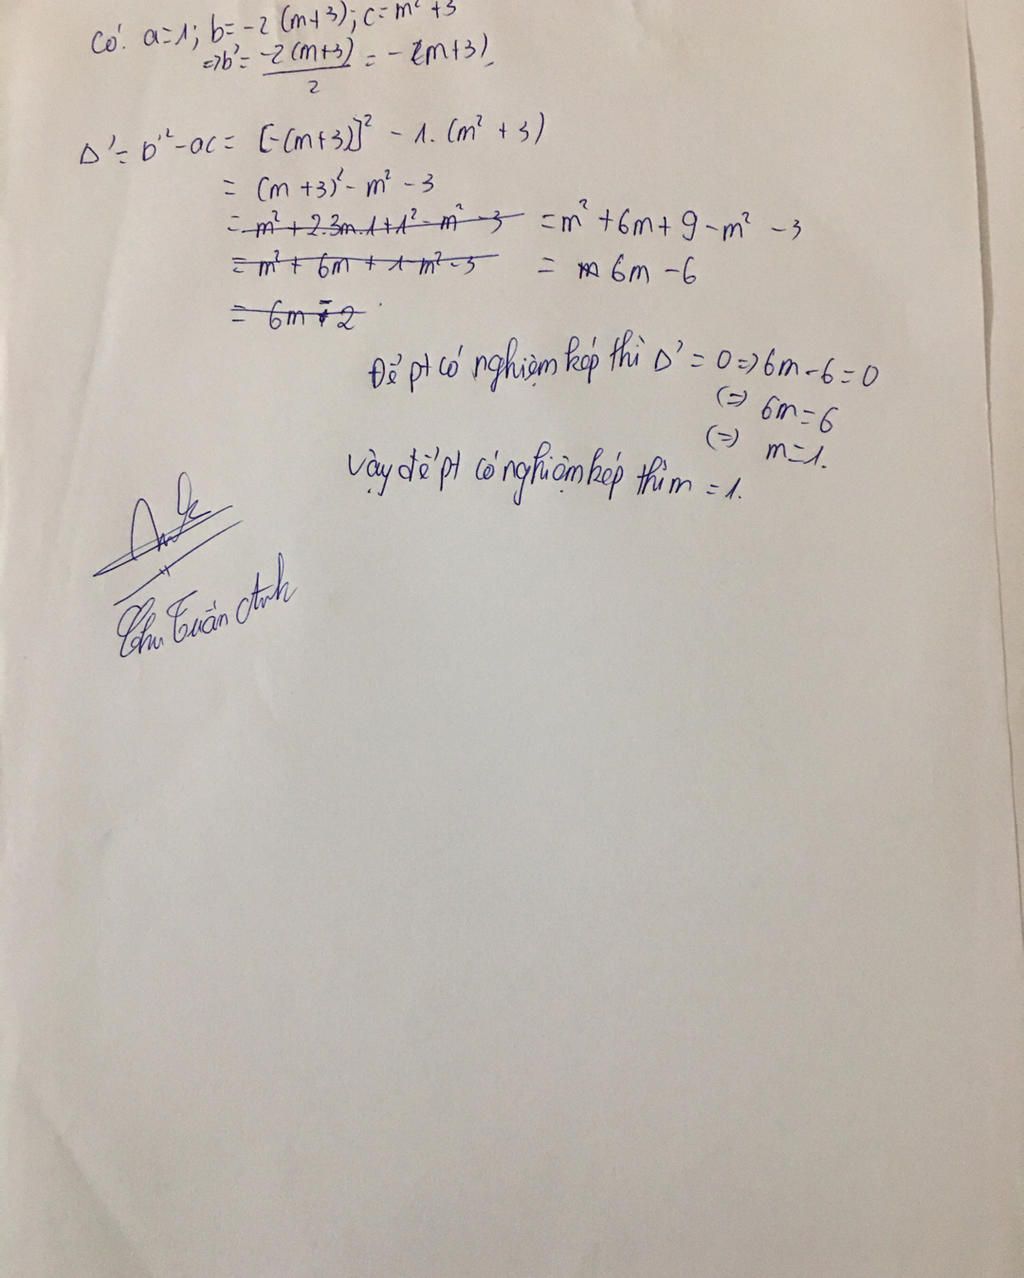 Có: a=1; b=-2(m+3); c=m²+3
=>b'= -2(m+3)/2 = -(m+3)
Δ'= b'²-ac= [-(m+3)]² - 1.(m² + 3)
= (m +3)² - m² - 3
= m² + 2.3m.1+1² - m² - 3 = m² +6m + 9 - m² - 3
= m² + 6m + 1 - m² - 3 = 6m - 6
= 6m - 2
Để pt có nghiệm kép thì Δ' = 0 => 6m - 6 = 0
(=) 6m = 6
(=) m = 1.
Vậy để pt có nghiệm kép thì m = 1.
Chu Tuấn Anh